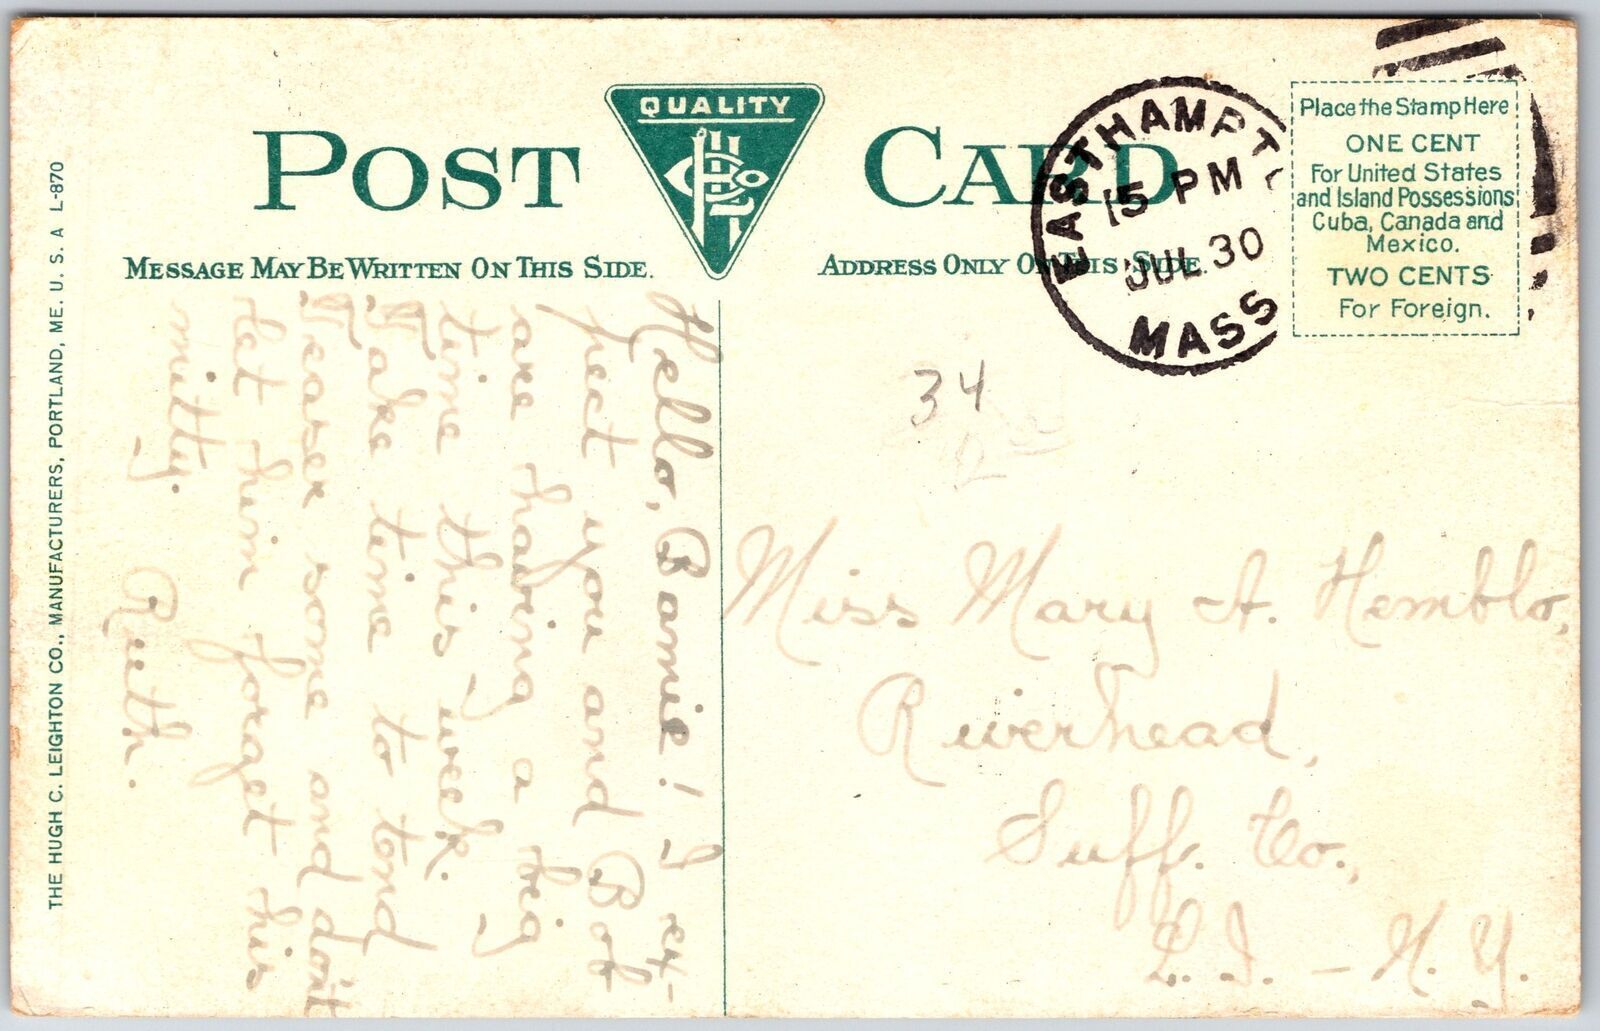 POST CARD
QUALITY
MESSAGE MAY BE WRITTEN ON THIS SIDE.
ADDRESS ONLY ON THIS SIDE.
EASTHAMPTO
15 PM
JUL 30
MASS
Place the Stamp Here
ONE CENT
For United States
and Island Possessions
Cuba, Canada and
Mexico.
TWO CENTS
For Foreign.
THE HUGH C. LEIGHTON CO., MANUFACTURERS, PORTLAND, ME. U. S. A L-870
Hello, Bamie! I ex-
pect you and Bob
are having a big
time this week.
Take time to tend
Teaser some and don't
let him forget his
mitty.
Ruth.
34
Miss Mary A. Hemblo,
Riverhead,
Suff. Co.,
L.I. - N.Y.